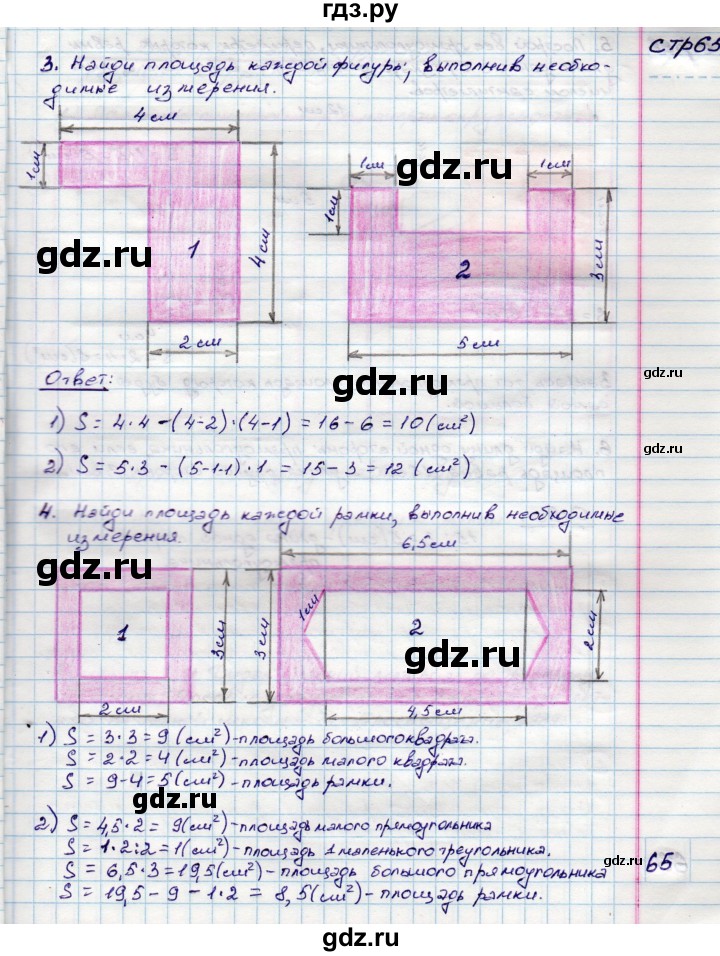 гдз.ру
стр65
3. Найди площадь каждой фигуры, выполнив необхо-
димые измерения.
4см
1см
1см
1см
1см
gdz.ru
gdz.ru
1
4см
2
3см
2см
5см
gdz.ru
gdz.ru
Ответ:
1) S = 4·4 - (4-2)·(4-1) = 16 - 6 = 10 (см²)
2) S = 5·3 - (5-1-1)·1 = 15 - 3 = 12 (см²)
gdz.ru
4. Найди площадь каждой рамки, выполнив необходимые
измерения.
gdz.ru
6,5см
1
3см
3см
1см
2
2см
gdz.ru
gdz.ru
2см
4,5см
1) S = 3·3 = 9 (см²) - площадь большого квадрата.
S = 2·2 = 4 (см²) - площадь малого квадрата.
S = 9-4 = 5 (см²) - площадь рамки.
gdz.ru
2) S = 4,5·2 = 9 (см²) - площадь малого прямоугольника
S = 1·2:2 = 1 (см²) - площадь 1 маленького треугольника.
S = 6,5·3 = 19,5 (см²) - площадь большого прямоугольника
S = 19,5 - 9 - 1·2 = 8,5 (см²) - площадь рамки.
65
gdz.ru
gdz.ru
gdz.ru